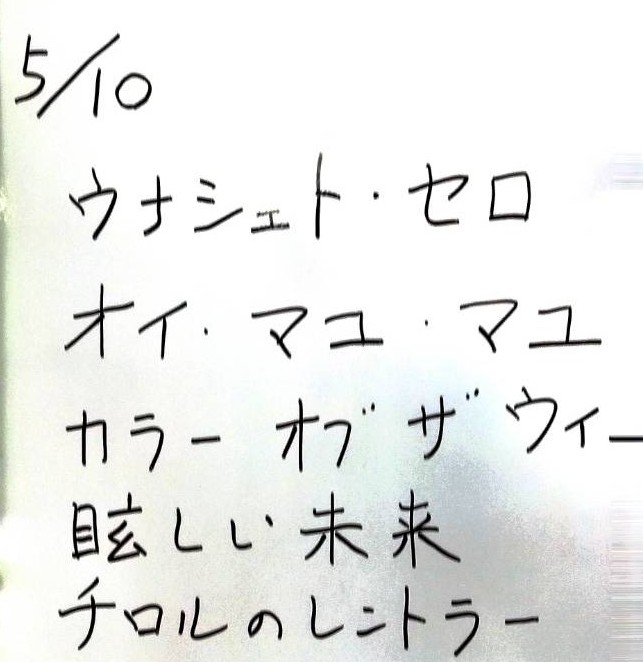 5/10
ウナシェト・セロ
オイ・マユ・マユ
カラー オブ ザ ウィー
眩しい未来
チロルのレントラー